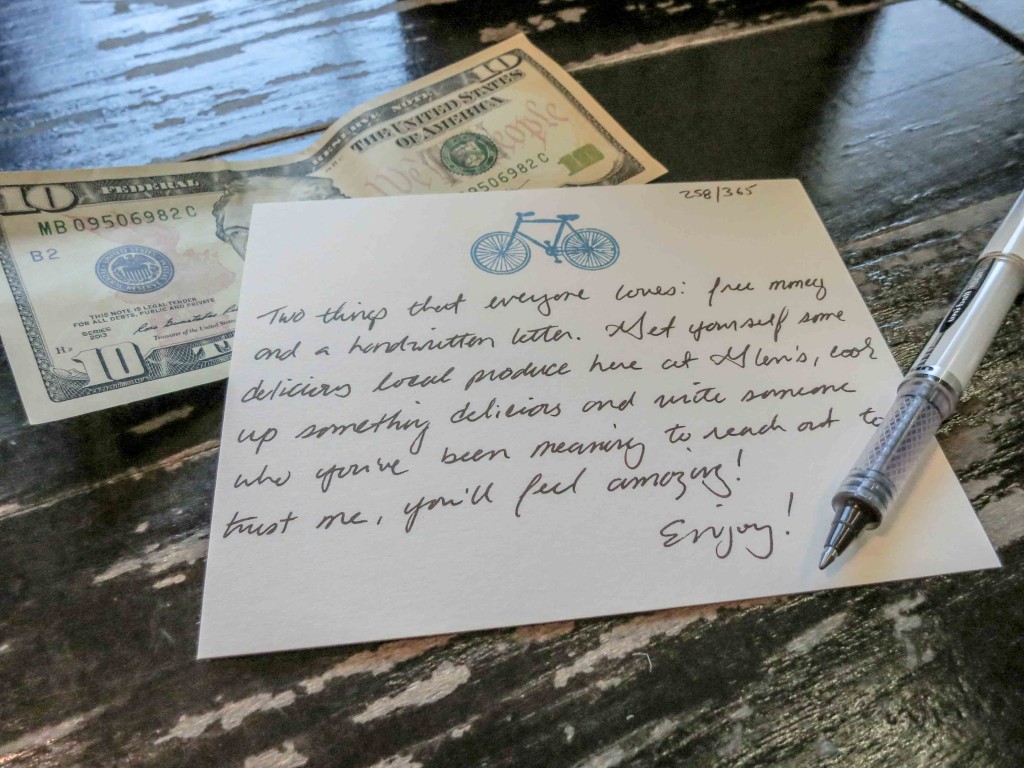 10
THE UNITED STATES
OF AMERICA
We the People
09506982 C
10
10
FEDERAL RESERVE NOTE
MB 09506982 C
B2
THIS NOTE IS LEGAL TENDER
FOR ALL DEBTS, PUBLIC AND PRIVATE
SERIES
2013
Treasurer of the United States
10
258/365
Two things that everyone loves: free money
and a handwritten letter. Get yourself some
delicious local produce here at Glen's, cook
up something delicious and write someone
who you've been meaning to reach out to
trust me, you'll feel amazing!
Enjoy!